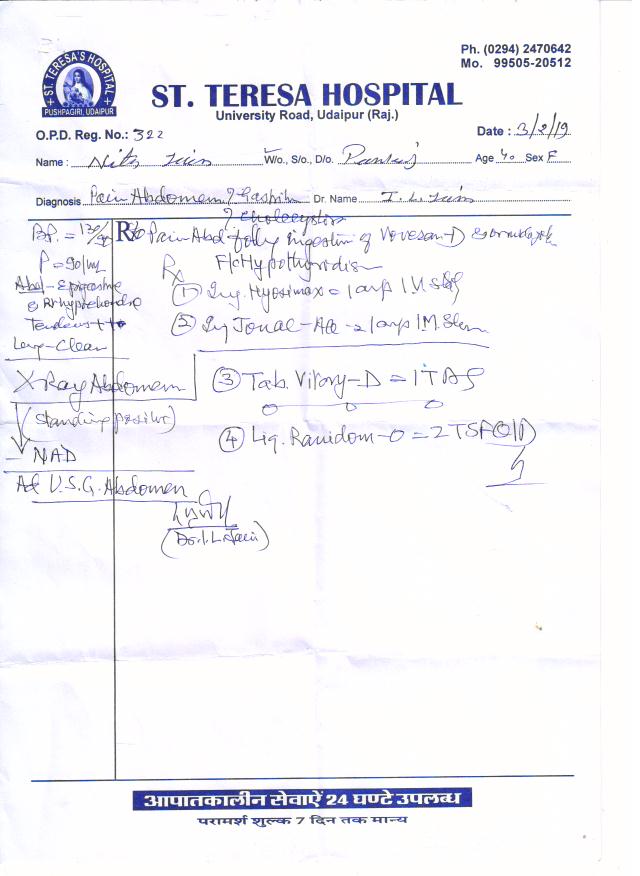 ST. TERESA'S HOSPITAL
PUSHPAGIRI, UDAIPUR
Ph. (0294) 2470642
Mo. 99505-20512
ST. TERESA HOSPITAL
University Road, Udaipur (Raj.)
O.P.D. Reg. No.: 322
Date : 3/2/19
Name : W/o, S/o, D/o. Pankaj Age 40 Sex F
Diagnosis Pain Abdomen ? Gastritis Dr. Name I. L. Jain
? Cholecystitis
B.P. = 130/90 Rx Pain Abd ingestion of Vovesan-D
P = 90/m F/c Hypothyroidism
Abd - Epigastric Rx
& Rt hypochondric ① Inj. Hyosimax = 1 amp I.M.
Tender ++ ② Inj Jonac-AQ = 1 amp I.M.
Lungs-Clear
X Ray Abdomen ③ Tab. -D = 1 T
(Standing position) ④ Liq. Ranidom-O = 2 TSF
- NAD
Ad U.S.G. Abdomen
(Dr. I. L. Jain)
आपातकालीन सेवाऐं 24 घण्टे उपलब्ध
परामर्श शुल्क 7 दिन तक मान्य